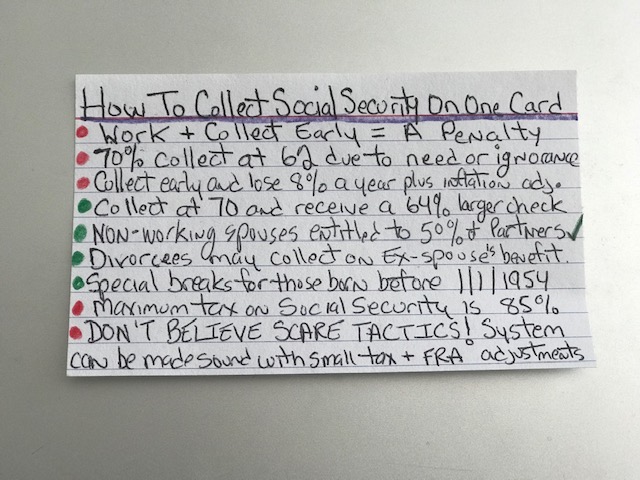 How To Collect Social Security On One Card
Work + Collect Early = A Penalty
70% collect at 62 due to need or ignorance
Collect early and lose 8% a year plus inflation adj.
Collect at 70 and receive a 64% larger check
NON-working spouses entitled to 50% of Partners ✓
Divorcees may collect on Ex-spouse's benefit.
Special breaks for those born before 1/1/1954
Maximum tax on Social Security is 85%
DON'T BELIEVE SCARE TACTICS! System
can be made sound with small tax + FRA adjustments